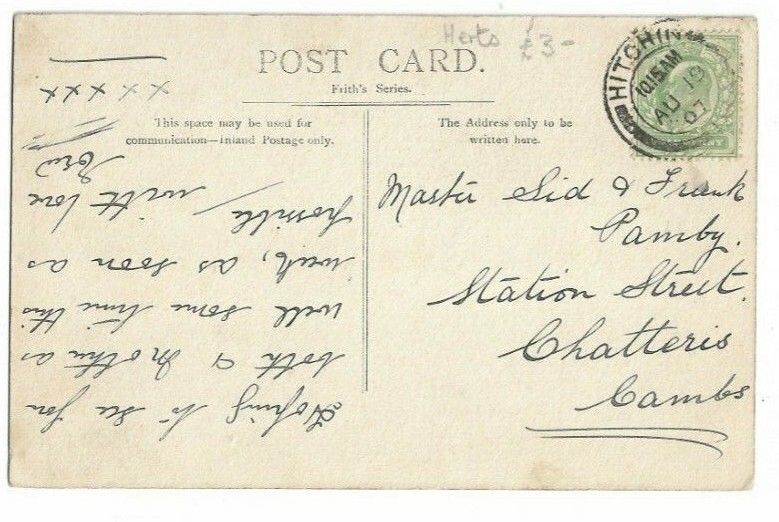 Herts £3-
POST CARD.
Frith's Series.
This space may be used for
communication—Inland Postage only.
The Address only to be
written here.
HITCHIN
10.15 AM
AU 19
07
Master Sid & Frank
Pamby.
Station Street.
Chatteris
Cambs
Hoping to see you
both & Mother as
well some time this
week, as soon as
possible / with love
xxxxx